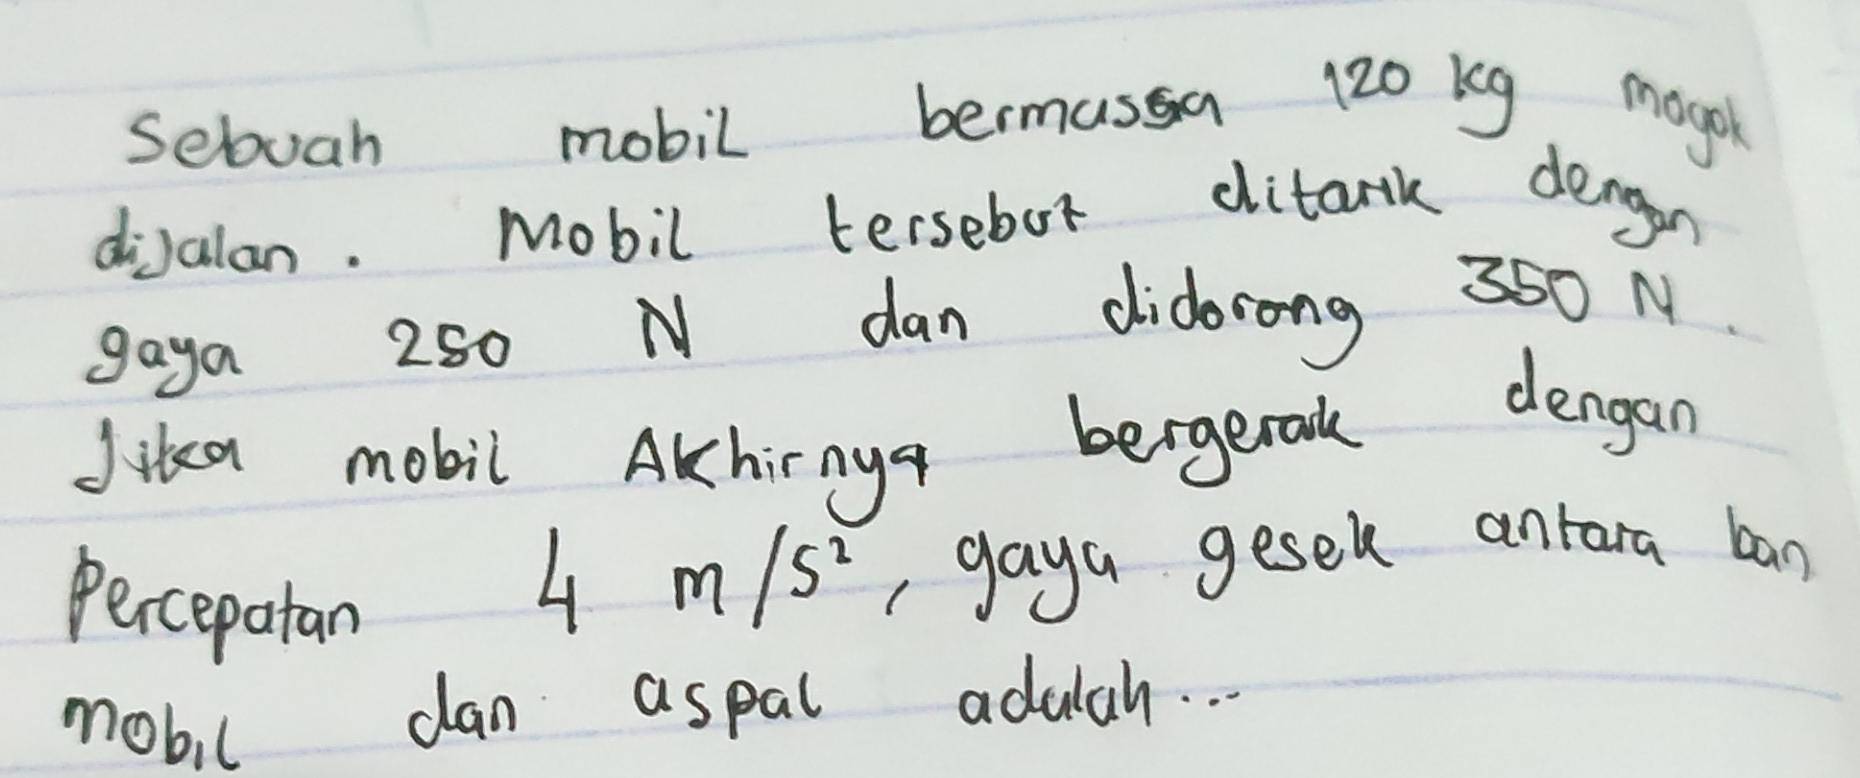 Sebuah mobil bermassa 120 kg mogok
dijalan. Mobil tersebut ditarik dengan
gaya 250 N dan didorong 350 N.
Jika mobil Akhirnya bergerak dengan
Percepatan 4 m/s², gaya gesek antara ban
mobil dan aspal adalah...